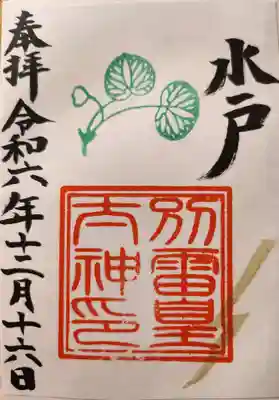 水戸
別雷皇
太神印
奉拝
令和六年十二月十六日